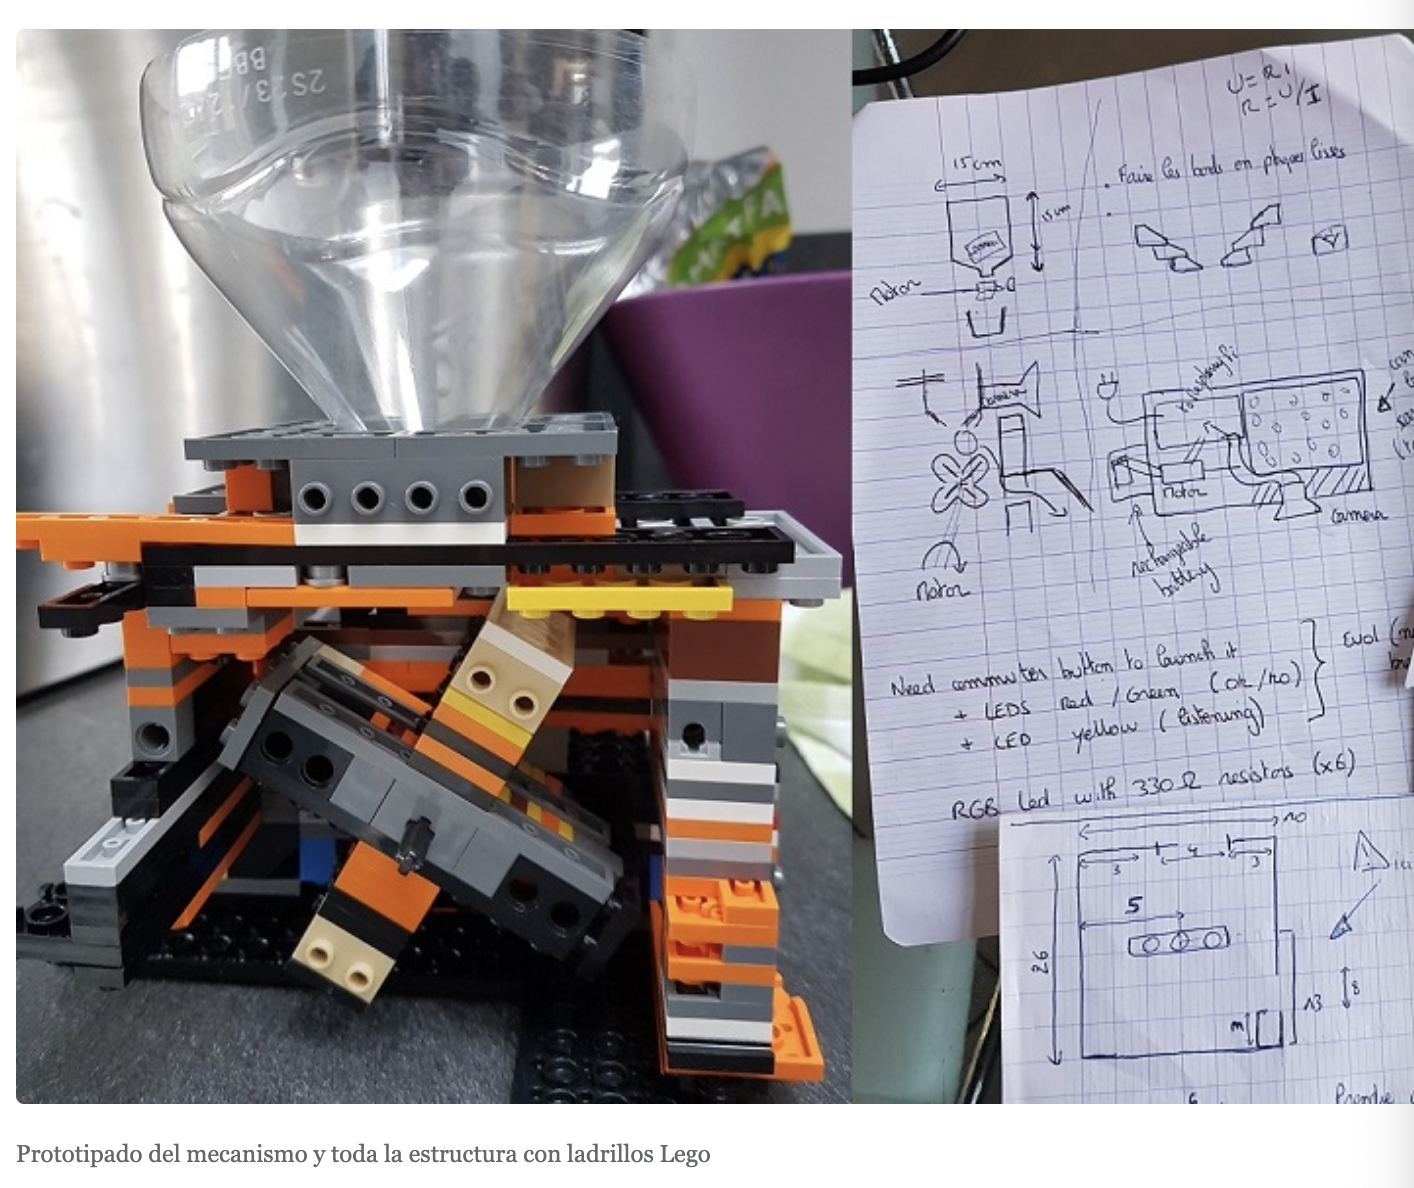 U = RI
R = U/I
15cm
15cm
. Faire les bords en plaques lisses
Motor
Raspberry Pi
camera
Motor
Motor
camera
rechargeable
battery
Need commuter button to launch it
+ LEDS Red / Green (ok/no)
+ LED yellow (listening)
Evol
RGB Led with 330 Ω resistors (x6)
10
3
4
3
5
26
13
8
m
Prendre
Prototipado del mecanismo y toda la estructura con ladrillos Lego